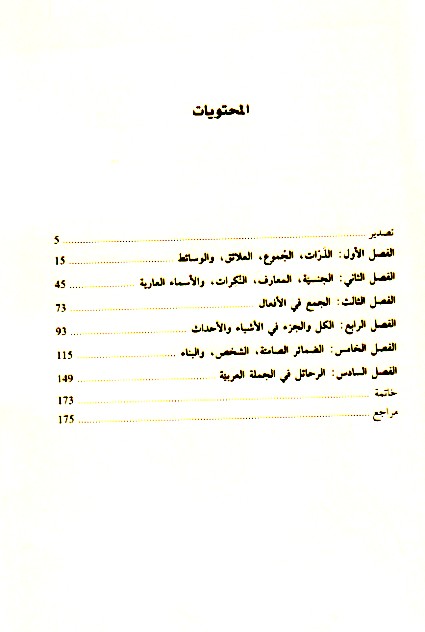 المحتويات
تصدير ........ 5
الفصل الأول: الذرات، الجموع، العلائق، والوسائط ........ 15
الفصل الثاني: الجنسية، المعارف، النكرات، والأسماء العارية ........ 45
الفصل الثالث: الجمع في الأفعال ........ 73
الفصل الرابع: الكل والجزء في الأشياء والأحداث ........ 93
الفصل الخامس: الضمائر الصامتة، الشخص، والبناء ........ 115
الفصل السادس: الرحائل في الجملة العربية ........ 149
خاتمة ........ 173
مراجع ........ 175